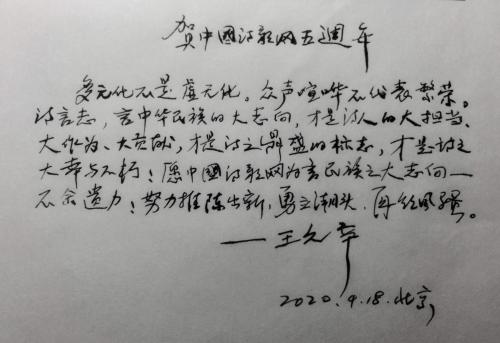 贺中國诗歌网五週年
多元化不是虚无化。众声喧哗不代表繁荣。
诗言志，言中华民族的大志向，才是诗人的大担当、
大作为、大贡献，才是诗之鼎盛的标志，才是诗之
大幸与不朽！愿中國诗歌网为言民族之大志向一
不余遗力！努力推陈出新，勇立潮头，再领风骚。
——王久辛
2020.9.18.北京